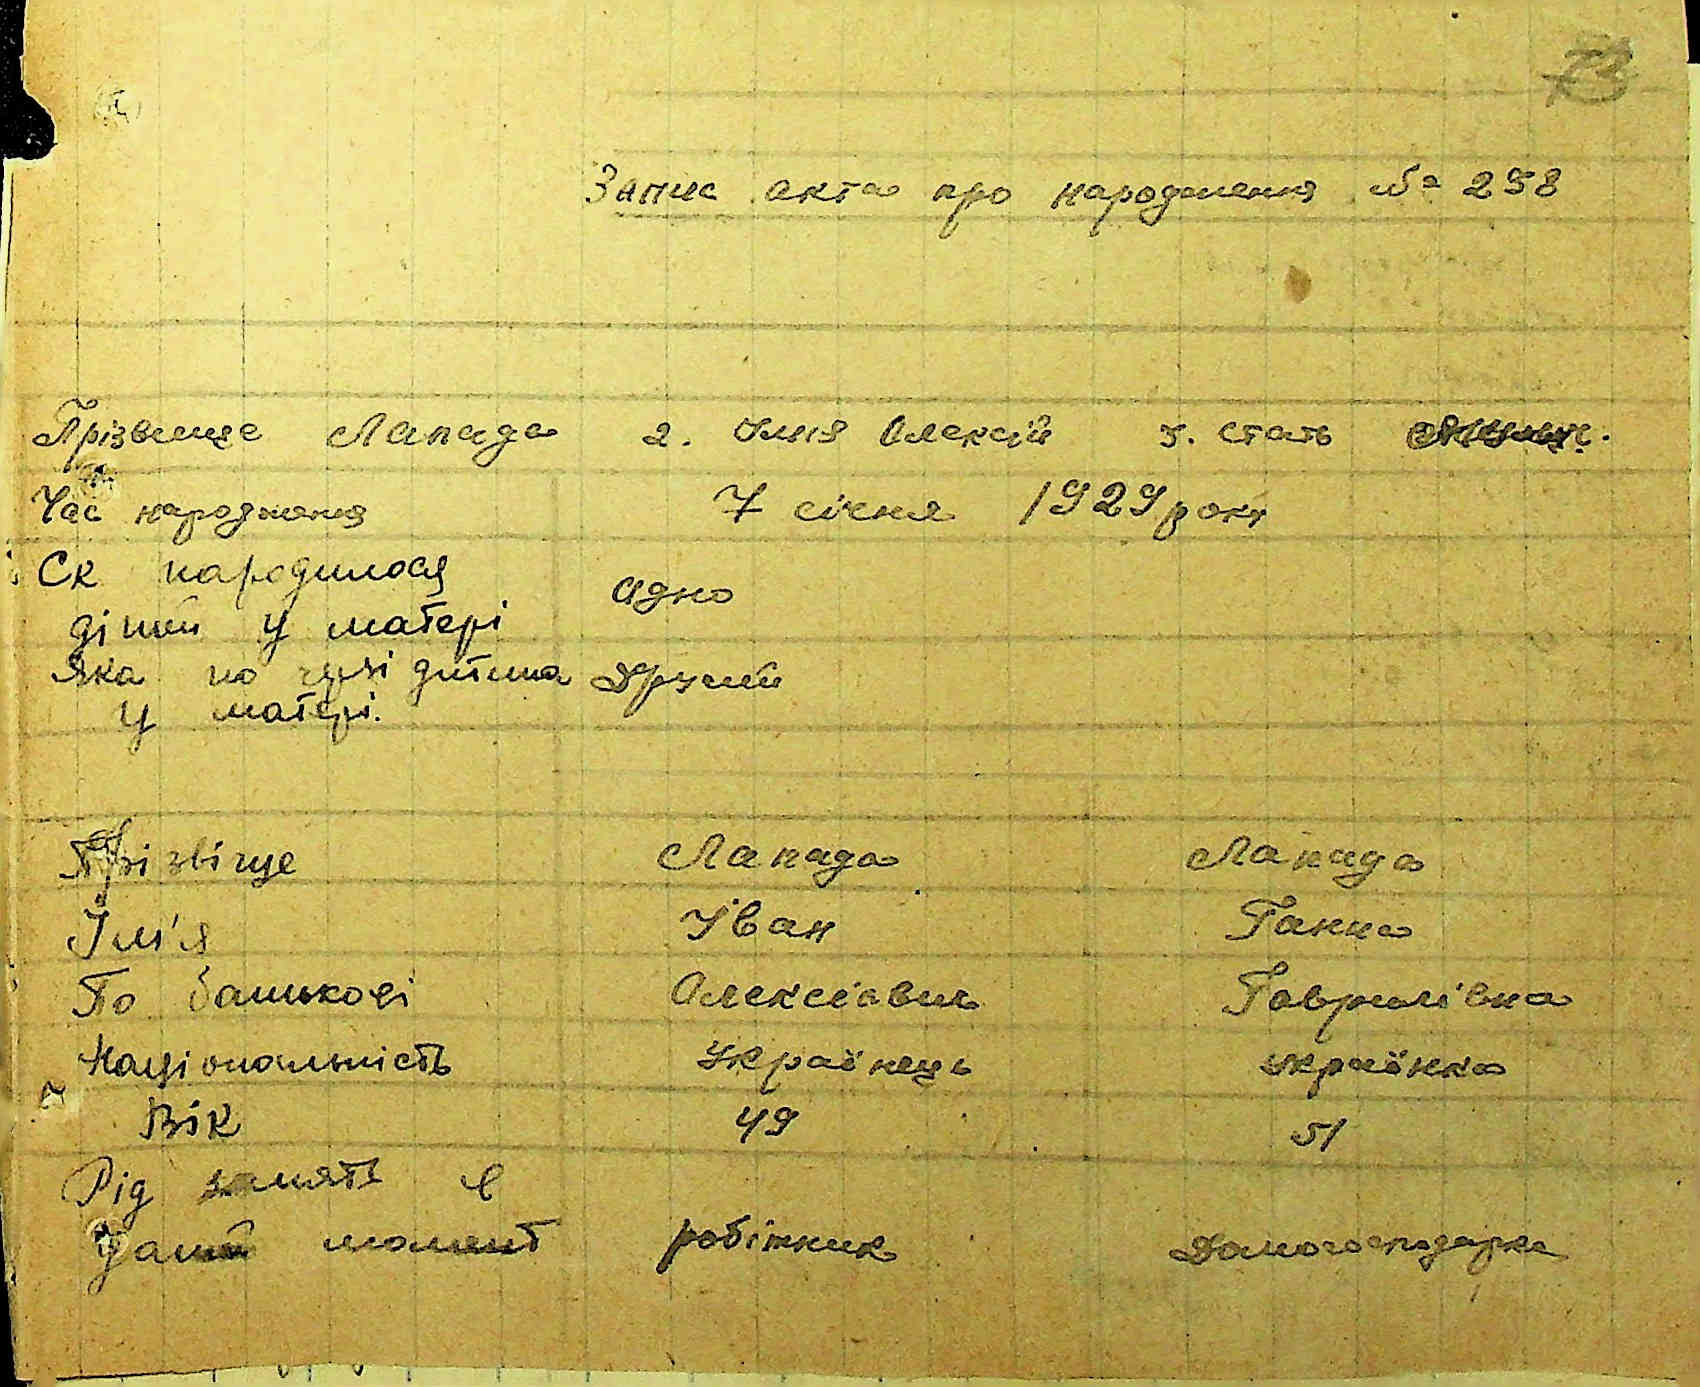 73
Запис акта про народження № 258
Прізвище Лапада 2. Імя Олексій 3. стать
Час народження 7 січня 1929 року
Ск народилося
дітей у матері одно
Яка по черзі дитина другий
у матері.
Прізвіще Лапада Лапада
Ім'я Іван Ганна
По батькові Олексіович Гаврилівна
Національність Українець українка
Вік 49 51
Рід занять в
даний момент робітник Домогосподарка